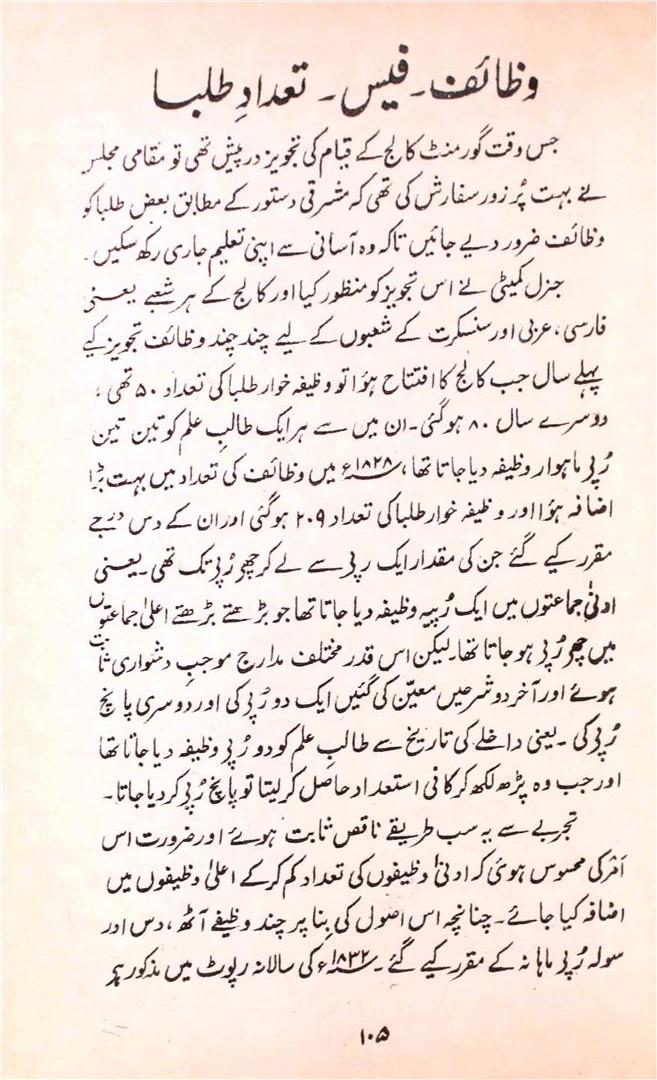 وظائف۔ فیس۔ تعدادِ طلبا
جس وقت گورمنٹ کالج کے قیام کی تجویز درپیش تھی تو مقامی مجلس
نے بہت پُر زور سفارش کی تھی کہ مشرقی دستور کے مطابق بعض طلبا کو
وظائف ضرور دیے جائیں تاکہ وہ آسانی سے اپنی تعلیم جاری رکھ سکیں۔
جنرل کمیٹی نے اس تجویز کو منظور کیا اور کالج کے ہر شعبے یعنی
فارسی، عربی اور سنسکرت کے شعبوں کے لیے چند چند وظائف تجویز کیے
پہلے سال جب کالج کا افتتاح ہؤا تو وظیفہ خوار طلبا کی تعداد ۵۰ تھی،
دوسرے سال ۸۰ ہوگئی۔ ان میں سے ہر ایک طالبِ علم کو تین تین
رُپی ماہوار وظیفہ دیا جاتا تھا، ۱۸۲۸ء میں وظائف کی تعداد میں بہت بڑا
اضافہ ہؤا اور وظیفہ خوار طلبا کی تعداد ۲۰۹ ہوگئی اور ان کے دس درجے
مقرر کیے گئے جن کی مقدار ایک رپی سے لے کر چھ رُپی تک تھی۔ یعنی
ادنیٰ جماعتوں میں ایک رُپیہ وظیفہ دیا جاتا تھا جو بڑھتے بڑھتے اعلیٰ جماعتوں
میں چھ رُپی ہو جاتا تھا۔ لیکن اس قدر مختلف مدارج موجبِ دشواری ثابت
ہوئے اور آخر دو شرحیں معیّن کی گئیں ایک دو رُپی کی اور دوسری پانچ
رُپی کی۔ یعنی داخلے کی تاریخ سے طالبِ علم کو دو رُپی وظیفہ دیا جاتا تھا
اور جب وہ پڑھ لکھ کر کافی استعداد حاصل کر لیتا تو پانچ رُپی کر دیا جاتا۔
تجربے سے یہ سب طریقے ناقص ثابت ہوئے اور ضرورت اس
اَمْر کی محسوس ہوئی کہ ادنیٰ وظیفوں کی تعداد کم کر کے اعلیٰ وظیفوں میں
اضافہ کیا جائے۔ چنانچہ اس اصول کی بِنا پر چند وظیفے آٹھ، دس اور
سولہ رُپی ماہانہ کے مقرر کیے گئے۔ ۱۸۳۲ء کی سالانہ رپوٹ میں مذکور ہر
۱۰۵